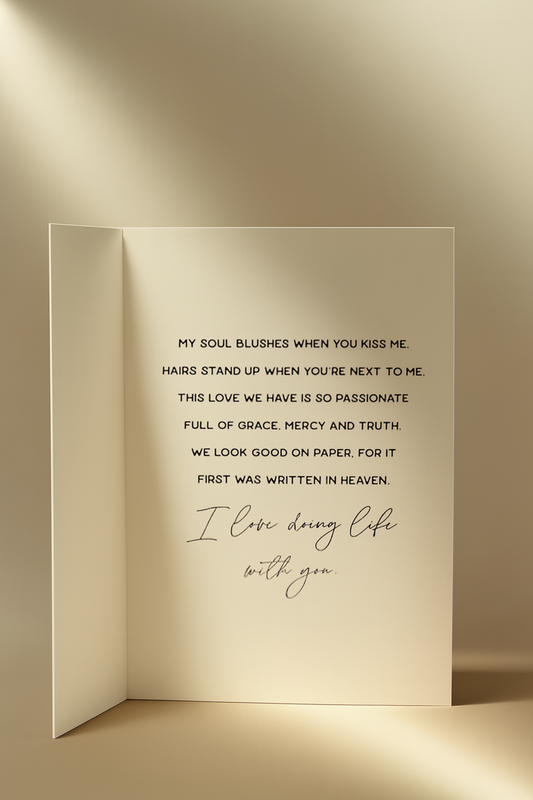 MY SOUL BLUSHES WHEN YOU KISS ME.
HAIRS STAND UP WHEN YOU'RE NEXT TO ME.
THIS LOVE WE HAVE IS SO PASSIONATE
FULL OF GRACE, MERCY AND TRUTH.
WE LOOK GOOD ON PAPER, FOR IT
FIRST WAS WRITTEN IN HEAVEN.
I love doing life
with you.